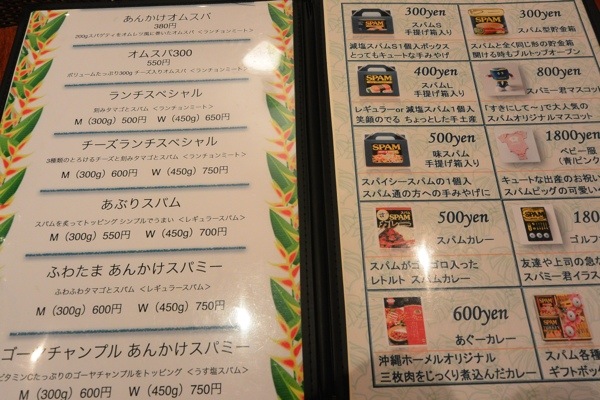 あんかけオムスパ
380円
200gスパゲティをオムレツ風に巻いたオムスパ <ランチョンミート>
オムスパ300
550円
ボリュームたっぷり300g チーズ入りオムスパ <ランチョンミート>
ランチスペシャル
刻みタマゴとスパム <ランチョンミート>
M（300g）500円　W（450g）650円
チーズランチスペシャル
3種類のとろけるチーズと刻みタマゴとスパム <ランチョンミート>
M（300g）600円　W（450g）750円
あぶりスパム
スパムを炙ってトッピング シンプルでうまい <レギュラースパム>
M（300g）550円　W（450g）700円
ふわたま あんかけスパミー
ふわふわタマゴとスパム <レギュラースパム>
M（300g）600円　W（450g）750円
ゴーヤチャンプル あんかけスパミー
ビタミンCたっぷりのゴーヤチャンプルをトッピング <うす塩スパム>
M（300g）600円　W（450g）750円
300yen
スパムS
手提げ箱入り
減塩スパムS1個入ボックス
とってもキュートな手みやげ
300yen
スパム型貯金箱
スパムと全く同じ形の貯金箱
開ける時もプルトップオープン
400yen
スパムL
手提げ箱入り
レギュラーor 減塩スパム1個入
笑顔のでる ちょっとした手土産
800yen
スパミー君マスコット
「すきにして〜」で大人気の
スパムオリジナルマスコット
500yen
味スパム
手提げ箱入り
スパイシースパムの1個入
スパム通の方への手みやげに
1800yen
ベビー服
(青|ピンク
キュートな出産のお祝い
スパムビッグの可愛い
500yen
スパムカレー
スパムがゴロゴロ入った
レトルト スパムカレー
180
ゴルフ
友達や上司の急な
スパミー君イラス
600yen
あぐーカレー
沖縄ホーメルオリジナル
三枚肉をじっくり煮込んだカレー
スパム各種
ギフトボック